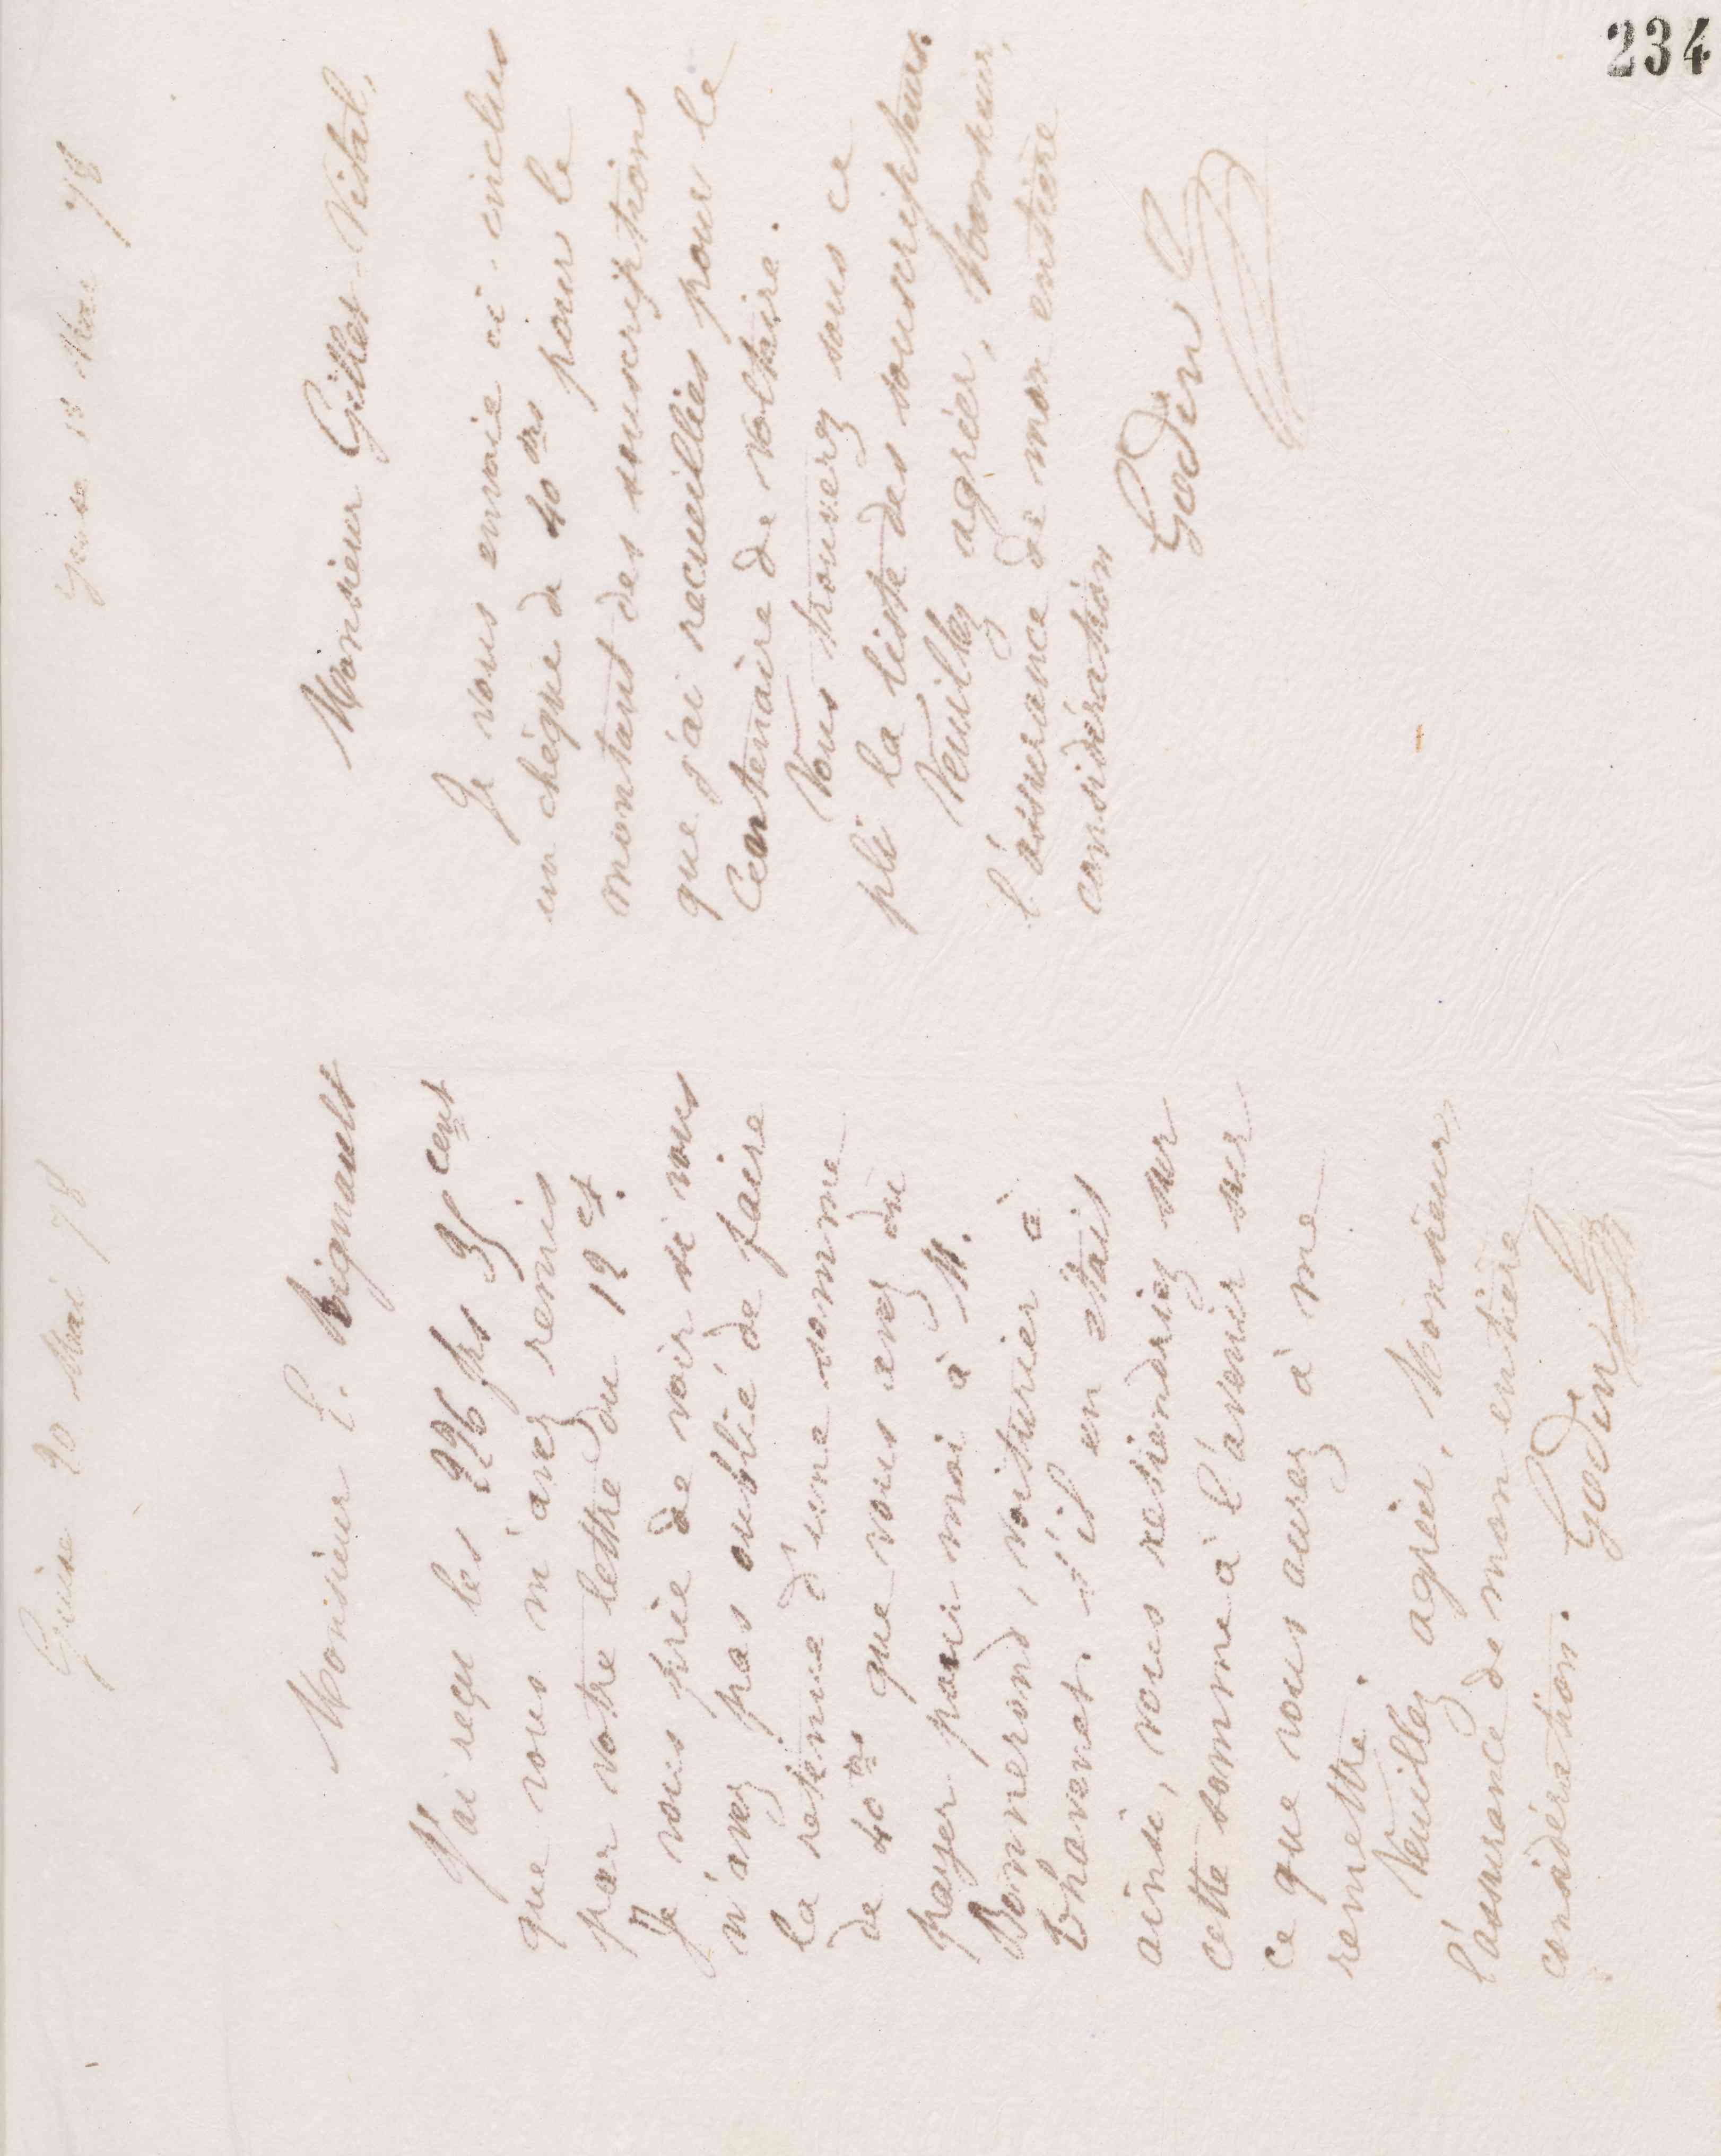 234
Guise 20 Mai 78
Monsieur E. Vignault
J'ai reçu les 226 frs 35 cent
que vous m'avez remis
par votre lettre du 12 ct.
Je vous prie de voir si vous
n'avez pas oublié de faire
la retenue d'une somme
de 40 frs que vous avez du
payer pour moi à M.
Bonnerond, voiturier à
Thavenet. s'il en était
ainsi, vous retiendriez sur
cette somme à l'avenir sur
ce que vous aurez à me
remettre.
Veuillez agréer, Monsieur,
l'assurance de mon entière
considération.
Godin
Guise 18 Mai 78
Monsieur Gilles-Vital,
Je vous envoie ci-inclus
un chèque de 40 frs pour le
montant des souscriptions
que j'ai recueillies pour le
Centenaire de Voltaire.
Vous trouverez sous ce
pli la liste des souscripteurs.
Veuillez agréer, Monsieur,
l'assurance de mon entière
considération
Godin